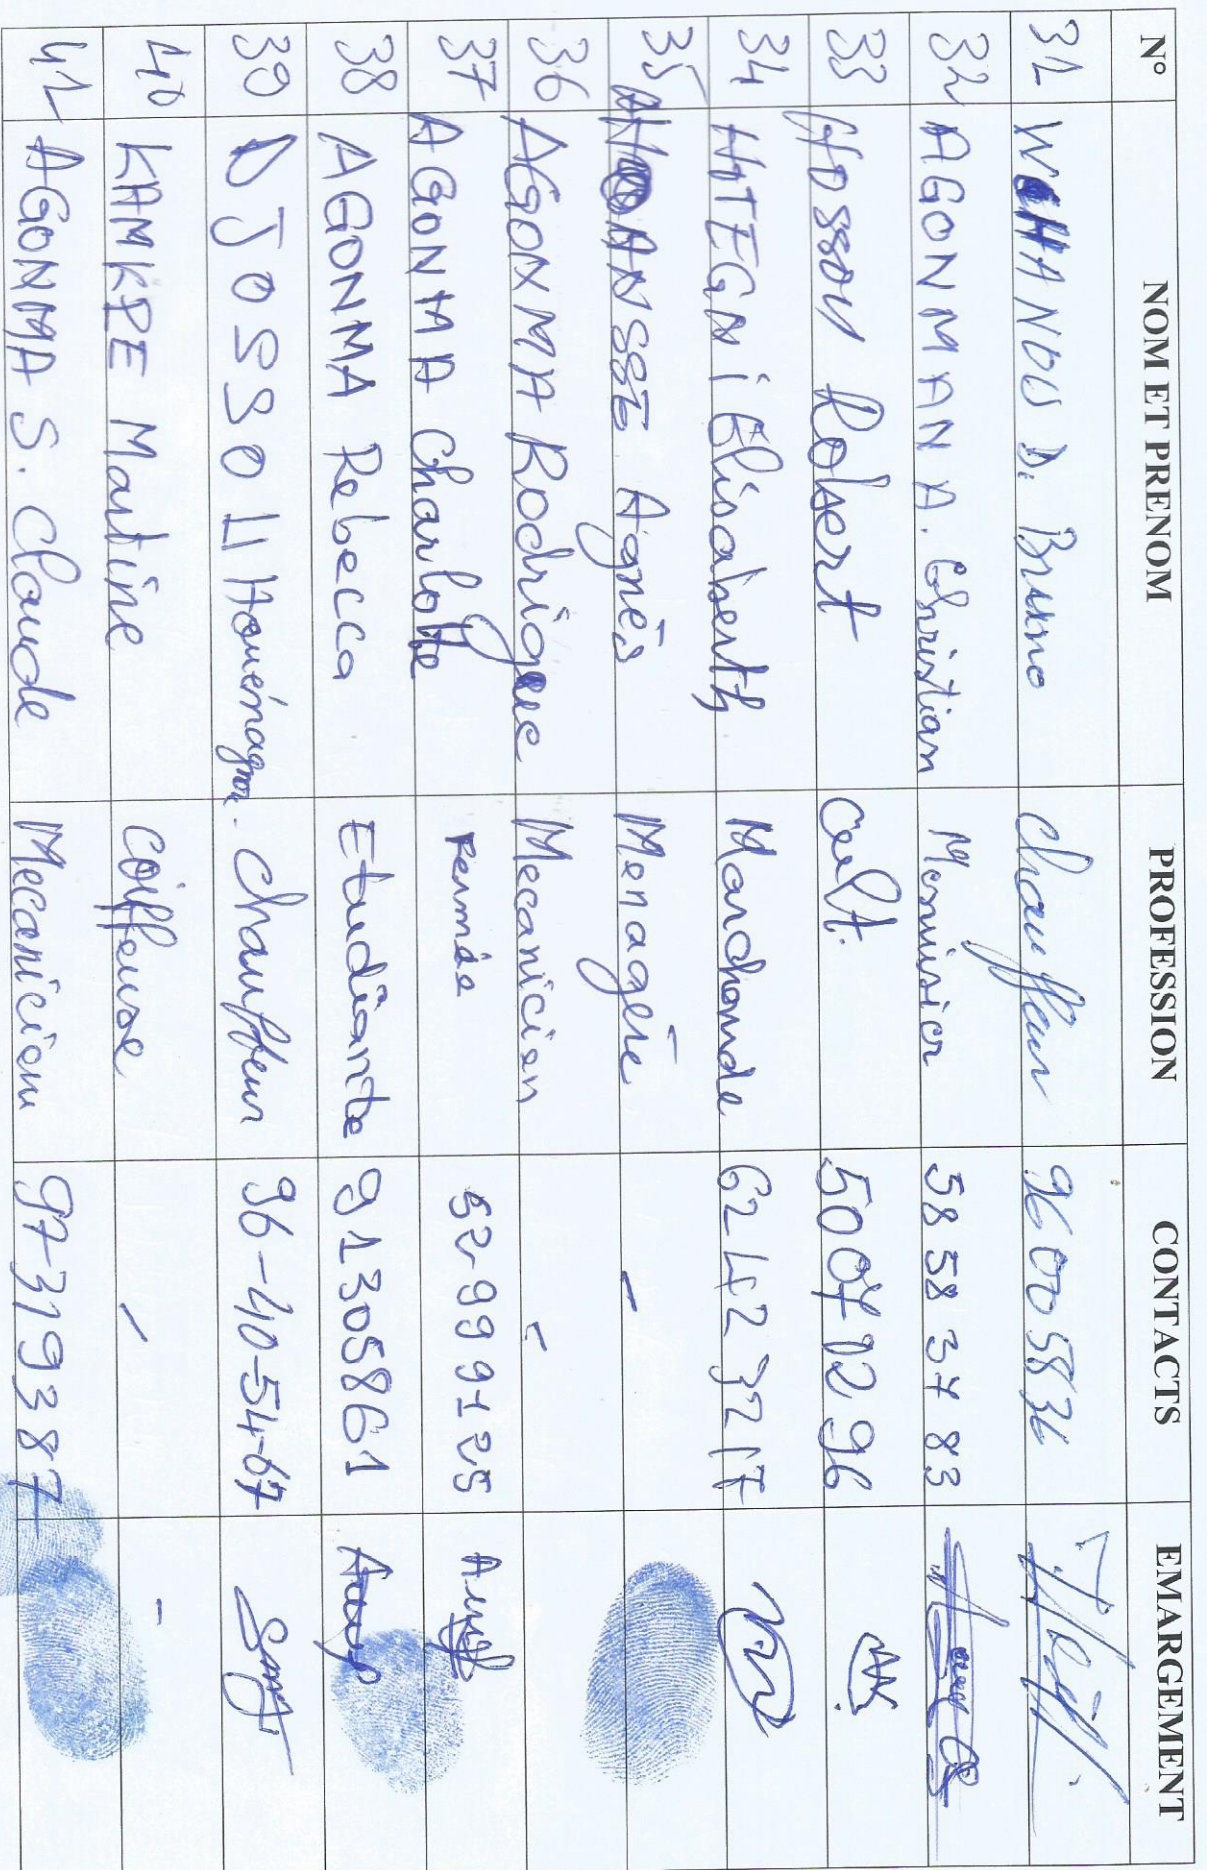 N° NOM ET PRENOM PROFESSION CONTACTS EMARGEMENT
31 D. Bruno chauffeur 96005836
32 AGONMAN A. Christian Menuisier 58 58 37 83
33 Robert cult. 50071296
34 HITEGNi Elisabeth Marchande 62423217
35 Agnès Menagère -
36 AGONMA Rodrigue Mecanicien -
37 AGONMA Charlotte 52-999125
38 AGONMA Rebecca Etudiante 91305861
39 DJOSSOU chauffeur 96-40-54-67
40 KAMKPE Martine Coiffeuse - -
41 AGONMA S. Claude Mecanicien 97319387